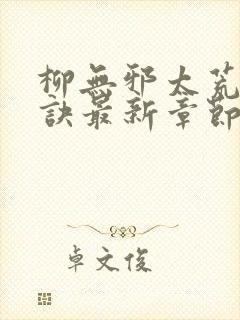 柳無邪太荒
訣最新章節
卓文俊